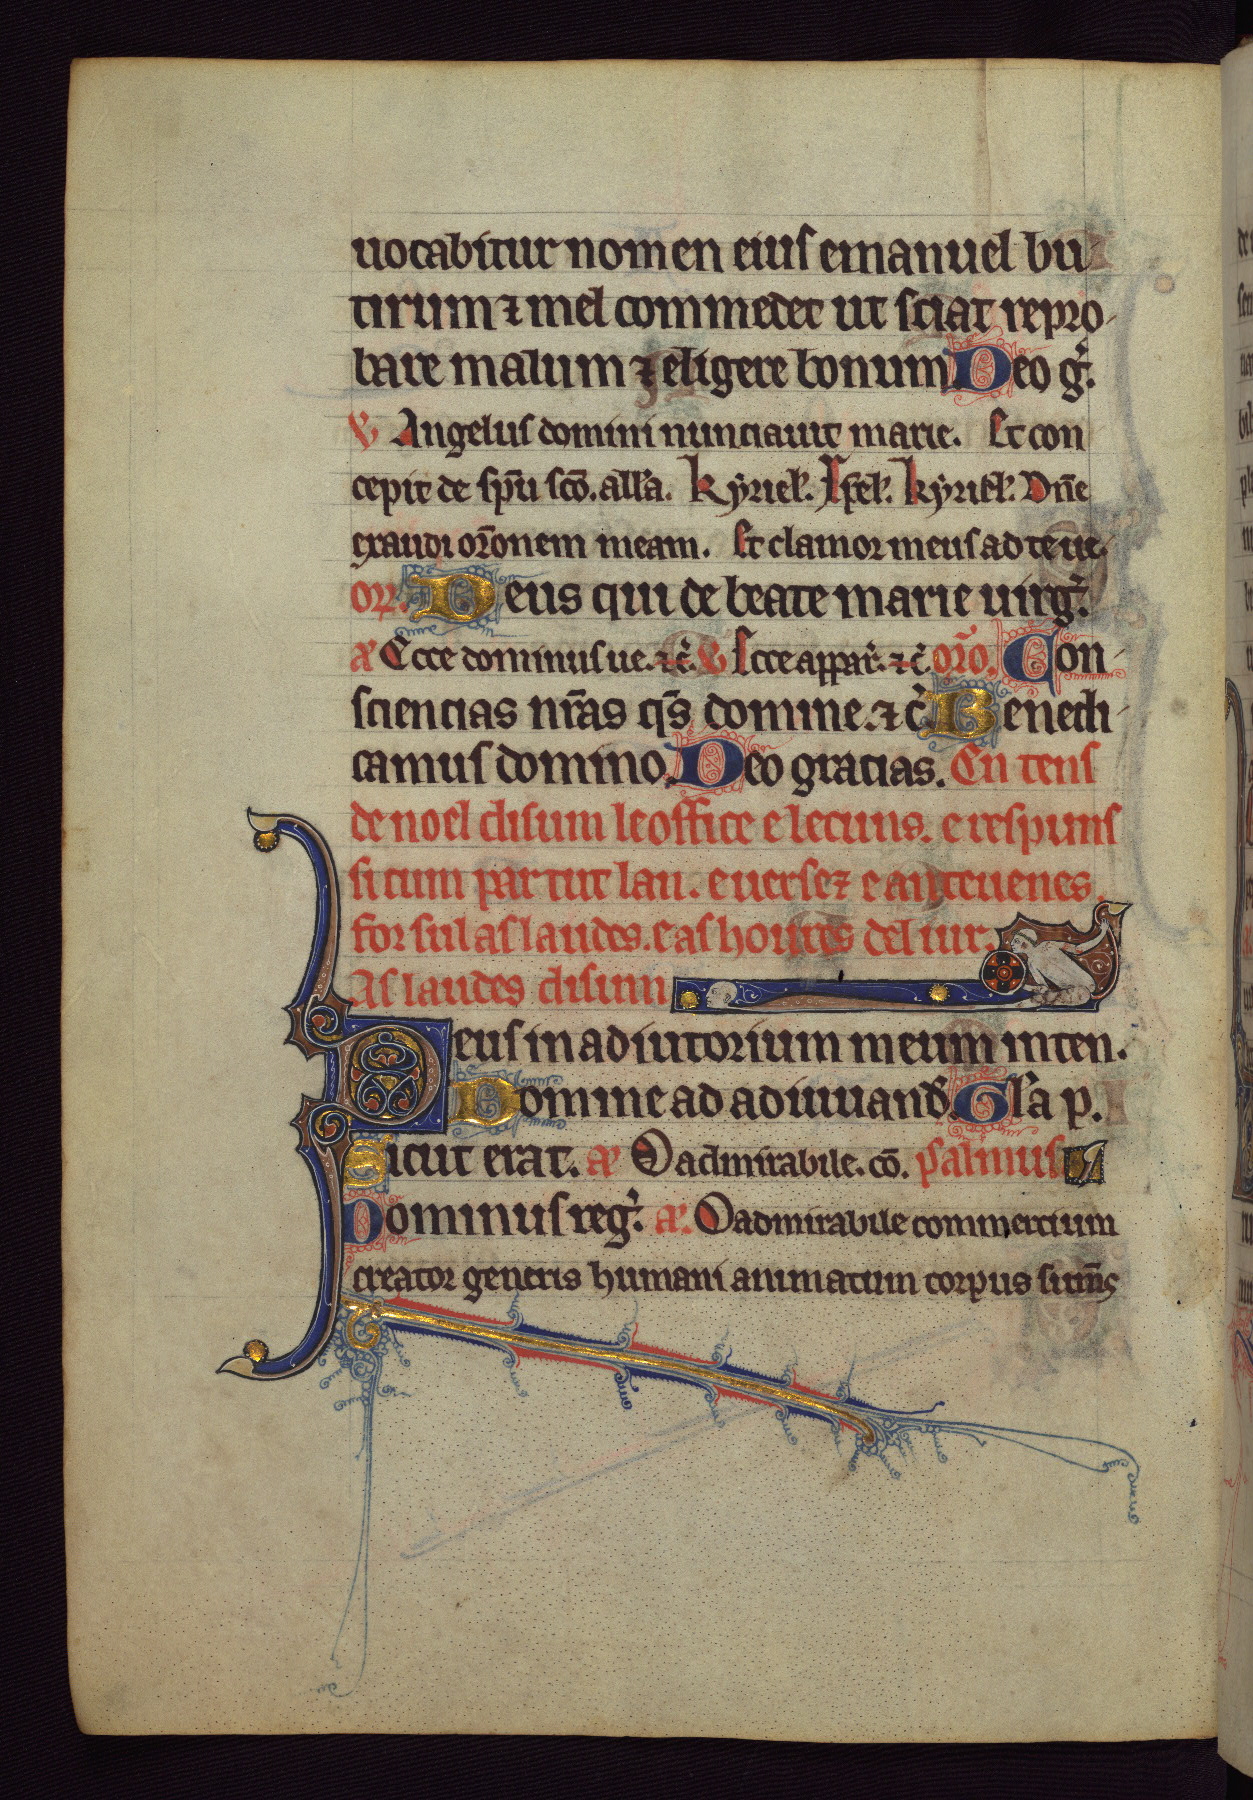 uocabitur nomen eius emanuel bu
tirum ⁊ mel commedet ut sciat repro
bare malum ⁊ eligere bonum Deo g̾.
℣ Angelus domini nunciauit marie. Et con
cepit de sp̄u sc̄o. all'a. kyriel'. xp̄el'. kyriel'. Dn̄e
exaudi or̄onem meam. Et clamor meus ad te ue.
or̄. Deus qui de beate marie uirg̾.
a' Ecce dominus ue. ⁊ c̾. ℣ Ecce appar̾. ⁊ c̾. or̄o. Con
sciencias nr̄as q̄s domine. ⁊ c̾. Benedi
camus domino. Deo gracias. En tens
de noel disum le office e lecuns. e respuns
si cum par tut lan. e uersez e anteuenes
for sul as laudes. e as houres del iur.
As laudes disum
Deus in adiutorium meum inten.
Domine ad adiuuand'. Gl'a p.
Sicut erat. a' O admirabile. cō. psalmus
Dominus reg̾. a'. O admirabile commercium
creator generis humani animatum corpus sum̄s